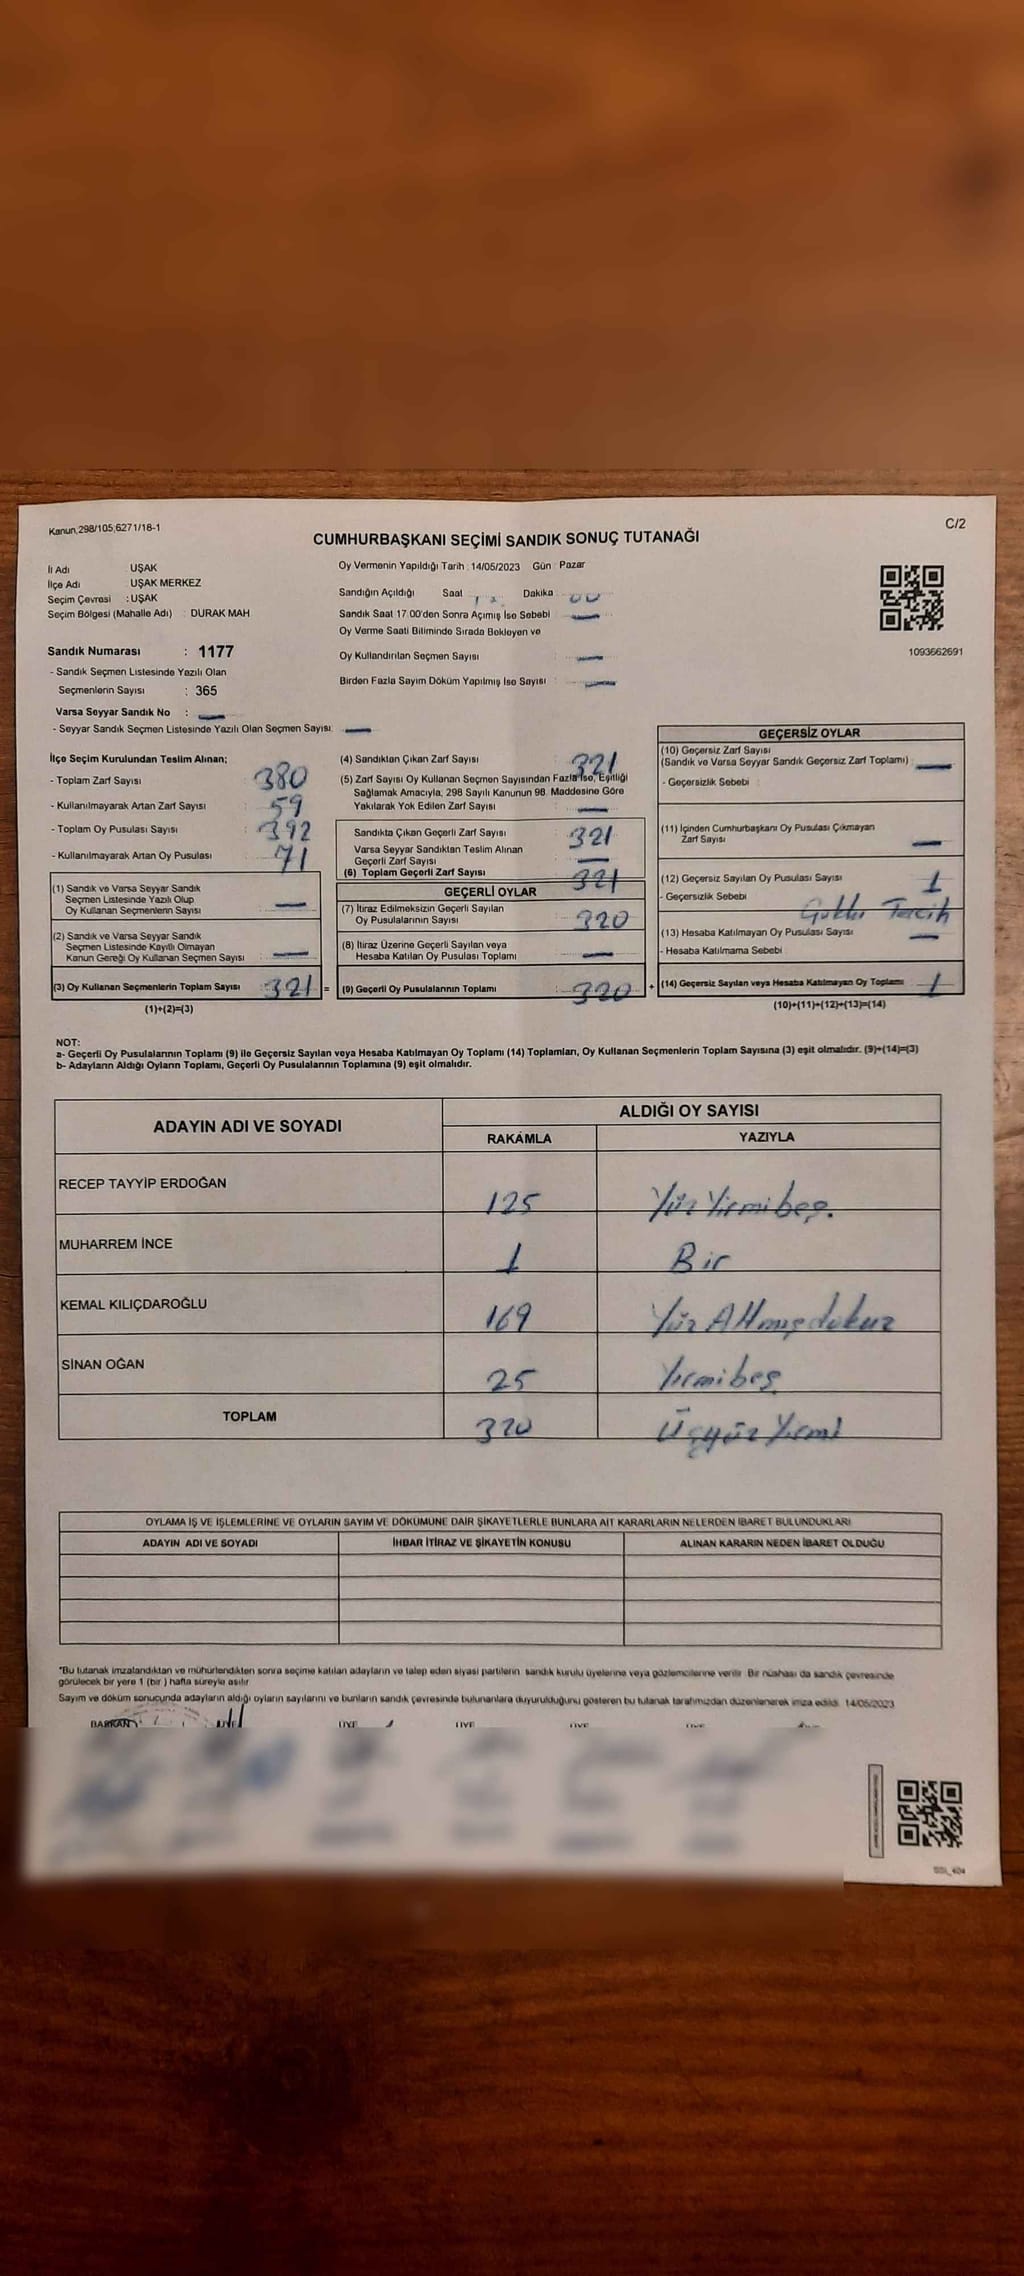 Kanun,298/105,6271/18-1
C/2
CUMHURBAŞKANI SEÇİMİ SANDIK SONUÇ TUTANAĞI
İl Adı UŞAK
İlçe Adı UŞAK MERKEZ
Seçim Çevresi : UŞAK
Seçim Bölgesi (Mahalle Adı) : DURAK MAH
Sandık Numarası : 1177
- Sandık Seçmen Listesinde Yazılı Olan
Seçmenlerin Sayısı : 365
Varsa Seyyar Sandık No : —
- Seyyar Sandık Seçmen Listesinde Yazılı Olan Seçmen Sayısı: —
Oy Vermenin Yapıldığı Tarih : 14/05/2023 Gün : Pazar
Sandığın Açıldığı Saat Dakika 00
Sandık Saat 17.00'den Sonra Açılmış İse Sebebi —
Oy Verme Saati Bitiminde Sırada Bekleyen ve
Oy Kullandırılan Seçmen Sayısı —
Birden Fazla Sayım Döküm Yapılmış İse Sayısı —
1093662691
İlçe Seçim Kurulundan Teslim Alınan;
- Toplam Zarf Sayısı : 380
- Kullanılmayarak Artan Zarf Sayısı : 59
- Toplam Oy Pusulası Sayısı : 392
- Kullanılmayarak Artan Oy Pusulası : 71
(1) Sandık ve Varsa Seyyar Sandık
Seçmen Listesinde Yazılı Olup
Oy Kullanan Seçmenlerin Sayısı : —
(2) Sandık ve Varsa Seyyar Sandık
Seçmen Listesinde Kayıtlı Olmayan
Kanun Gereği Oy Kullanan Seçmen Sayısı : —
(3) Oy Kullanan Seçmenlerin Toplam Sayısı : 321 =
(1)+(2)=(3)
(4) Sandıktan Çıkan Zarf Sayısı : 321
(5) Zarf Sayısı Oy Kullanan Seçmen Sayısından Fazla İse, Eşitliği
Sağlamak Amacıyla, 298 Sayılı Kanunun 98. Maddesine Göre
Yakılarak Yok Edilen Zarf Sayısı : —
Sandıkta Çıkan Geçerli Zarf Sayısı : 321
Varsa Seyyar Sandıktan Teslim Alınan
Geçerli Zarf Sayısı : —
(6) Toplam Geçerli Zarf Sayısı : 321
GEÇERLİ OYLAR
(7) İtiraz Edilmeksizin Geçerli Sayılan
Oy Pusulalarının Sayısı : 320
(8) İtiraz Üzerine Geçerli Sayılan veya
Hesaba Katılan Oy Pusulası Toplamı : —
(9) Geçerli Oy Pusulalarının Toplamı : 320 +
GEÇERSİZ OYLAR
(10) Geçersiz Zarf Sayısı
(Sandık ve Varsa Seyyar Sandık Geçersiz Zarf Toplamı) : —
- Geçersizlik Sebebi :
(11) İçinden Cumhurbaşkanı Oy Pusulası Çıkmayan
Zarf Sayısı : —
(12) Geçersiz Sayılan Oy Pusulası Sayısı : 1
- Geçersizlik Sebebi : Tercih
(13) Hesaba Katılmayan Oy Pusulası Sayısı : —
- Hesaba Katılmama Sebebi :
(14) Geçersiz Sayılan veya Hesaba Katılmayan Oy Toplamı : 1
(10)+(11)+(12)+(13)=(14)
NOT:
a- Geçerli Oy Pusulalarının Toplamı (9) ile Geçersiz Sayılan veya Hesaba Katılmayan Oy Toplamı (14) Toplamları, Oy Kullanan Seçmenlerin Toplam Sayısına (3) eşit olmalıdır. (9)+(14)=(3)
b- Adayların Aldığı Oyların Toplamı, Geçerli Oy Pusulalarının Toplamına (9) eşit olmalıdır.
ADAYIN ADI VE SOYADI ALDIĞI OY SAYISI
RAKAMLA YAZIYLA
RECEP TAYYİP ERDOĞAN 125 Yüz Yirmibeş.
MUHARREM İNCE 1 Bir
KEMAL KILIÇDAROĞLU 169 Yüz Altmışdokuz
SİNAN OĞAN 25 Yirmibeş
TOPLAM 320 Üçyüz Yirmi
OYLAMA İŞ VE İŞLEMLERİNE VE OYLARIN SAYIM VE DÖKÜMÜNE DAİR ŞİKAYETLERLE BUNLARA AİT KARARLARIN NELERDEN İBARET BULUNDUKLARI
ADAYIN ADI VE SOYADI İHBAR İTİRAZ VE ŞİKAYETİN KONUSU ALINAN KARARIN NEDEN İBARET OLDUĞU
*Bu tutanak imzalandıktan ve mühürlendikten sonra seçime katılan adayların ve talep eden siyasi partilerin sandık kurulu üyelerine veya gözlemcilerine verilir. Bir nüshası da sandık çevresinde
görülecek bir yere 1 (bir ) hafta süreyle asılır
Sayım ve döküm sonucunda adayların aldığı oyların sayılarını ve bunların sandık çevresinde bulunanlara duyurulduğunu gösteren bu tutanak tarafımızdan düzenlenerek imza edildi. 14/05/2023
BAŞKAN ÜYE ÜYE ÜYE ÜYE ÜYE